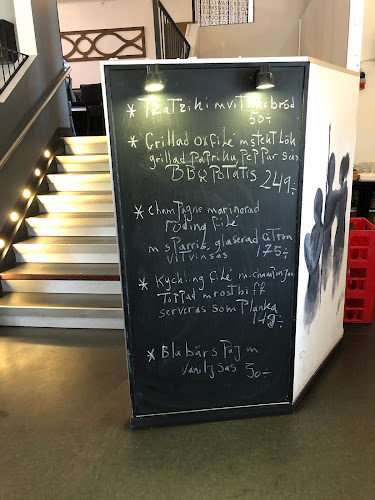 * Tzatziki m vitlöksbröd
50:-
* Grillad oxfilé m stekt lök
grillad paprika peppar sås
BBQ Potatis 249:-
* Champagne marinerad
röding filé
m sparris, glaserad citron
vitvinsås 175:-
* Kyckling filé m champinjon
Toppad m rostbiff
serveras som Planka
149:-
* Blåbärs paj m
vanilj sås 50:-